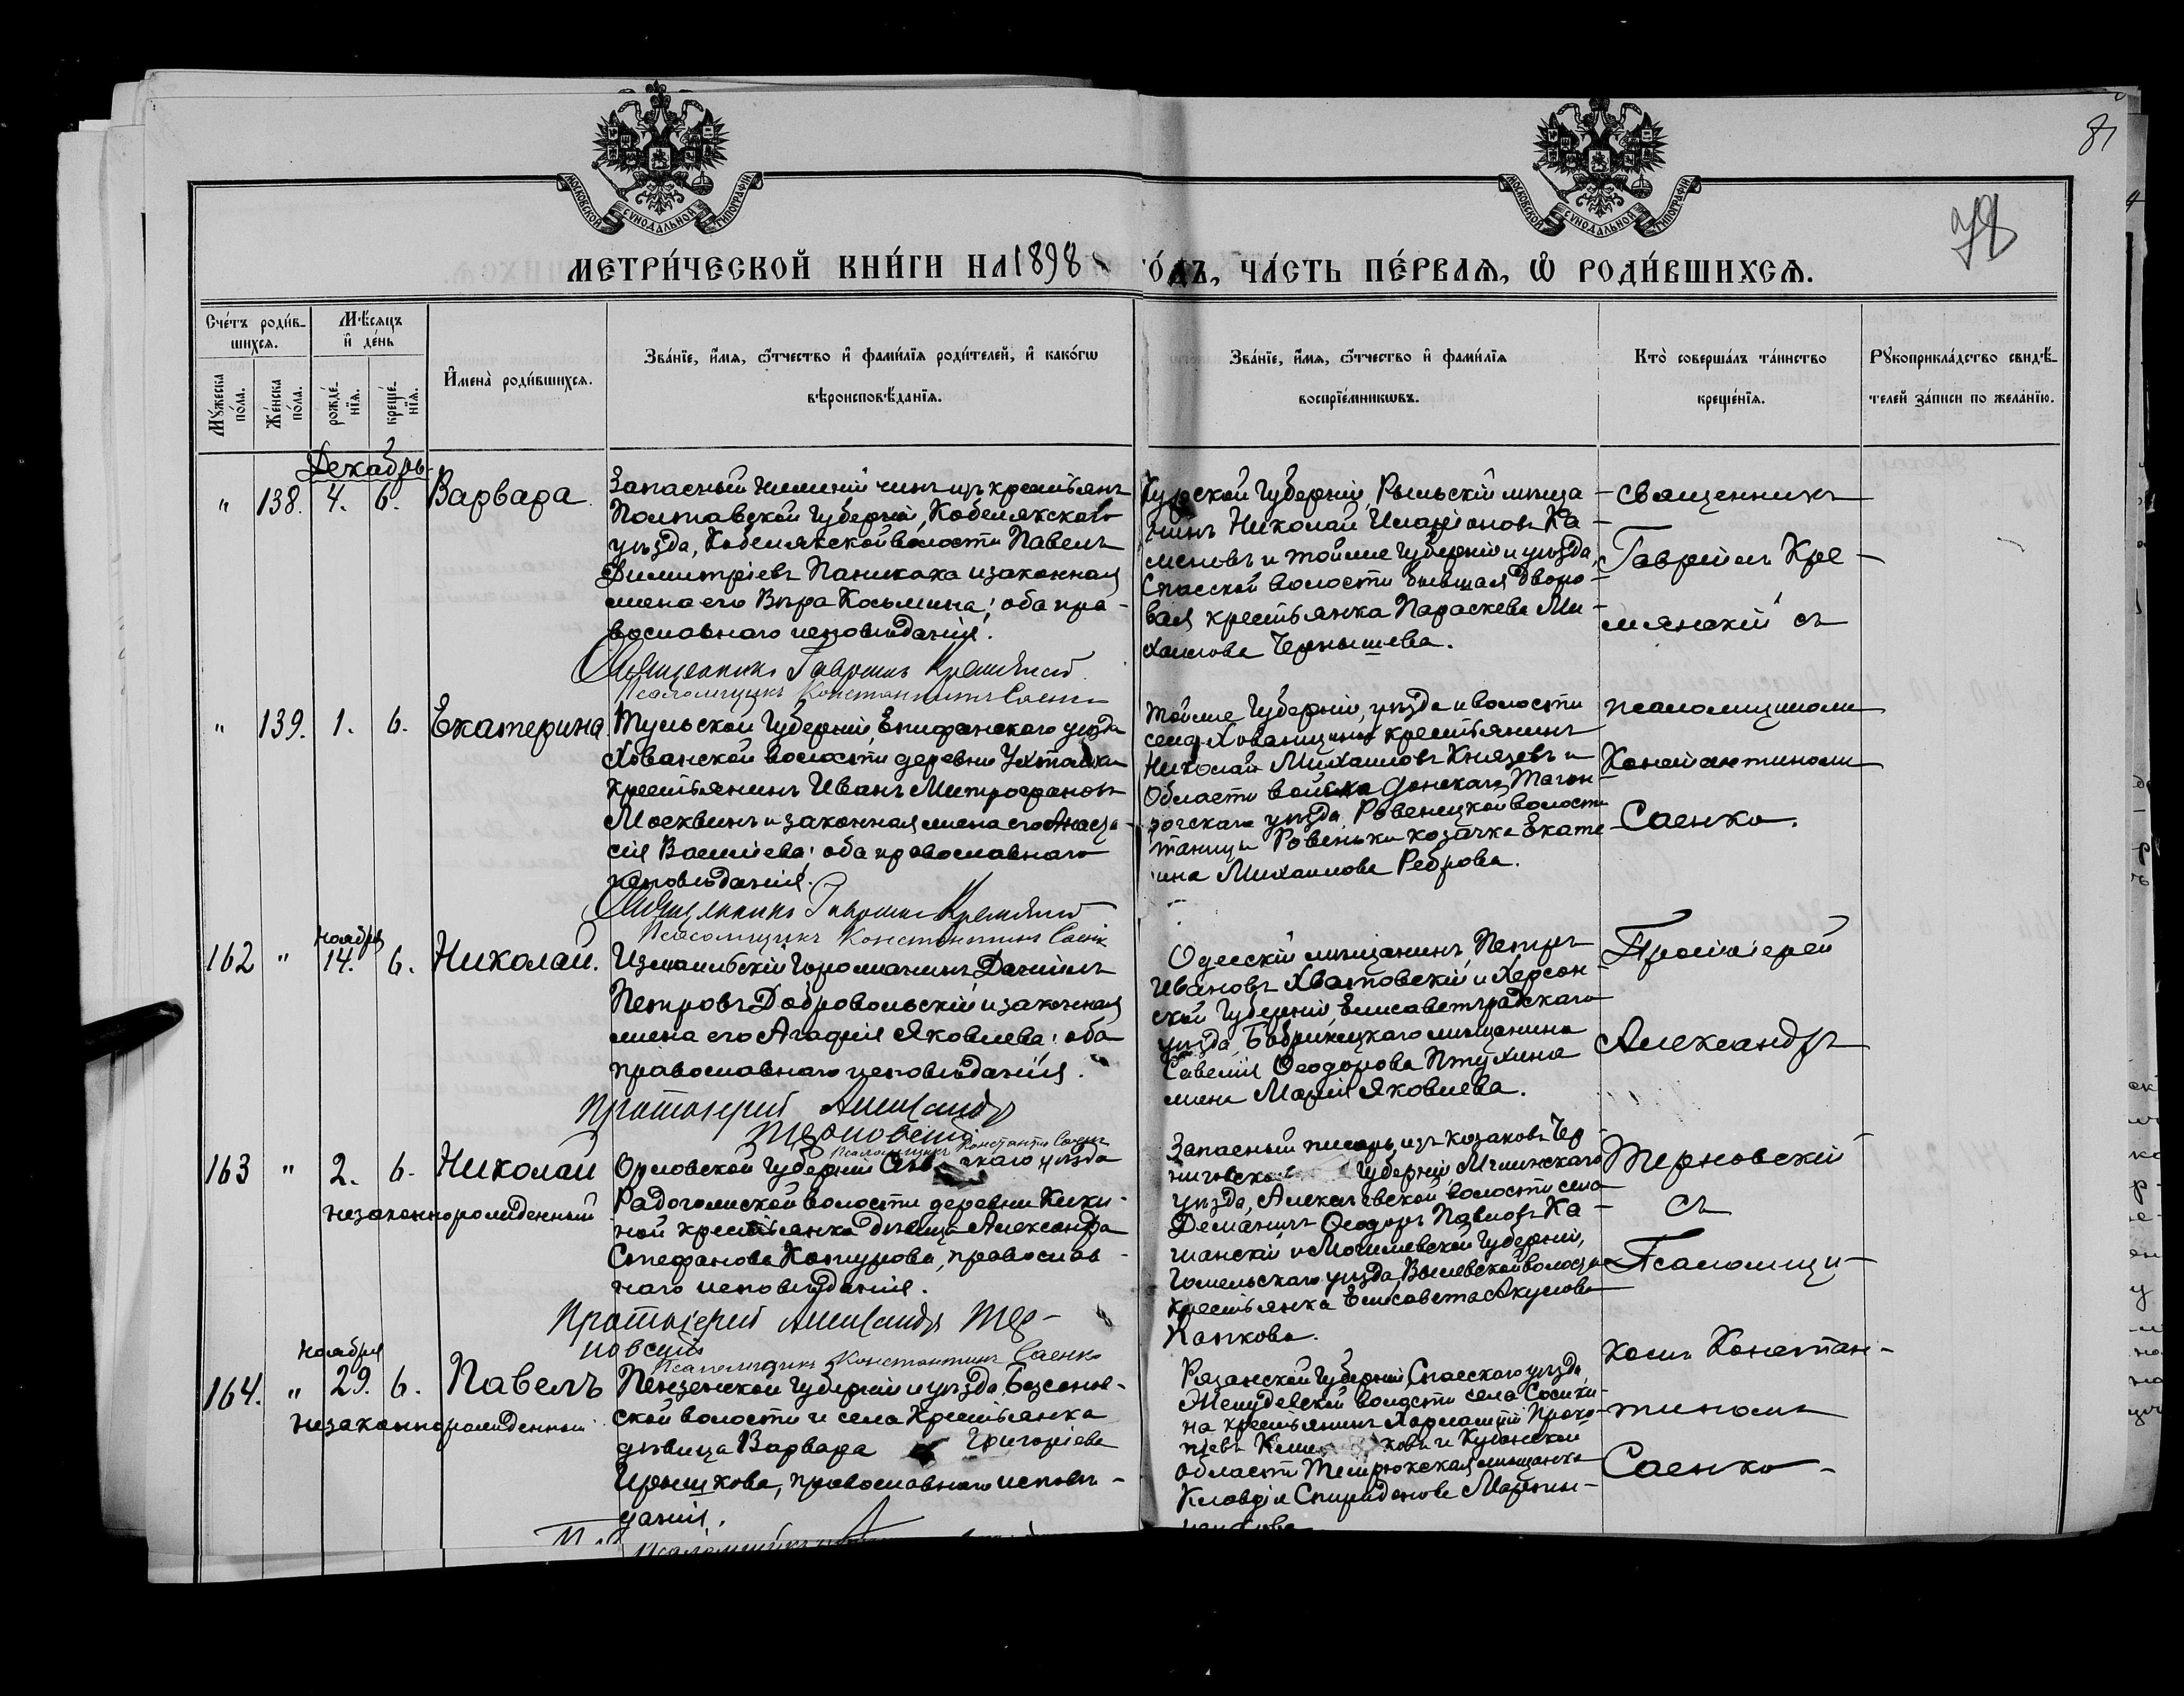 81
78
МОСКОВСКОЙ СѴНОДАЛЬНОЙ ТИПОГРАФІИ
МОСКОВСКОЙ СѴНОДАЛЬНОЙ ТИПОГРАФІИ
МЕТРИ́ЧЕСКОЙ КНИ́ГИ НА 1898 ГО́ДЪ, ЧА́СТЬ ПЕ́РВАЯ, Ѡ҆ РОДИ́ВШИХСЯ.
Сче́тъ роди́в-
шихся.
Мꙋ́жеска по́ла.
Же́нска по́ла.
Мѣ́сяцъ
и҆ де́нь
рожде́-
нїя.
креще́-
нїя.
И҆мена̀ роди́вшихся.
Зва́нїе, и҆́мя, ѻ҆́тчество и҆ фами́лїя роди́телей, и҆ како́гѡ
вѣроисповѣ́данїя.
Зва́нїе, и҆́мя, ѻ҆́тчество и҆ фами́лїя
воспрїе́мникѡвъ.
Кто̀ соверша́лъ та́инство
креще́нїя.
Рꙋкоприкла́дство свидѣ́-
телей за́писи по жела́нїю.
Декабрь
" 138. 4. 6. Варвара
Запасный нижній чинъ изъ крестьянъ
Полтавской Губерніи, Кобелякскаго
уѣзда, Кобелякской волости Павелъ
Димитріевъ Паникаха и законная
жена его Вѣра Косьмина; оба пра-
вославнаго исповѣданія.
Священникъ Гавріилъ Кремянскій
Псаломщикъ Константинъ Саенко
Курской Губерніи, Рыльскій мѣща-
нинъ Николай Иларіоновъ Ка-
меновъ и тойже Губерніи и уѣзда,
Спасской волости бывшая дворо-
вая крестьянка Параскева Ми-
хаилова Чернышева.
Священникъ
Гавріилъ Кре-
мянскій съ
псаломщикомъ
Константиномъ
Саенко.
" 139. 1. 6. Екатерина
Тульской Губерніи, Епифанскаго уѣзда
Хованской волости деревни
крестьянинъ Иванъ Митрофановъ
Москвинъ и законная жена его Анаста-
сія Васильева; оба православнаго
исповѣданія.
Священникъ Гавріилъ Кремянскій
Псаломщикъ Константинъ Саенко
Тойже Губерніи, уѣзда и волости
села Хованщины крестьянинъ
Николай Михаиловъ Князевъ и
Области войска Донскаго, Таган-
рогскаго уѣзда, Ровенецкой волости
станицы Ровеньки козачка Екате-
рина Михаилова Реброва.
162 " Ноября 14. 6. Николай.
Измаильскій горожанинъ Даніилъ
Петровъ Добровольскій и законная
жена его Агафія Яковлева; оба
православнаго исповѣданія.
Протоіерей Александръ
Терновскій
Псаломщикъ Константинъ Саенко
Одесскій мѣщанинъ Петръ
Ивановъ Хватовскій и Херсон-
ской Губерніи, Елисаветградскаго
уѣзда, Бобринецкаго мѣщанина
Савелія Ѳеодорова Птухина
жена Марія Яковлева.
Протоіерей
Александръ
Терновскій
съ
Псаломщи-
комъ Констан-
тиномъ
Саенко
163 " 2. 6. Николай
незаконнорожденный
Орловской Губерніи уѣзда
Радогожской волости деревни Кики-
ной крестьянка дѣвица Александра
Стефанова Котурова, православ-
наго исповѣданія.
Протоіерей Александръ Тер-
новскій
Псаломщикъ Константинъ Саенко
Запасный писарь, изъ козаковъ Чер-
ниговской Губерніи, Мглинскаго
уѣзда, волости села
Деманичъ Ѳеодоръ Павловъ Ка-
шанскій и Могилевской Губерніи,
Гомельскаго уѣзда, Вылевской волости
крестьянка Елисавета Акулова
Капкова.
164. " Ноября 29. 6. Павелъ
незаконнорожденный
Пензенской Губерніи и уѣзда, Безсонов-
ской волости и села крестьянка
дѣвица Варвара Григоріева
Ирышкова, православнаго исповѣ-
данія.
Псаломщикъ
Рязанской Губерніи, Спасскаго уѣзда,
волости села Сосики-
на крестьянинъ Харлампій Проко-
піевъ и Кубанской
области Темрюкская мѣщанка
Клавдія Спиридонова Мартин-